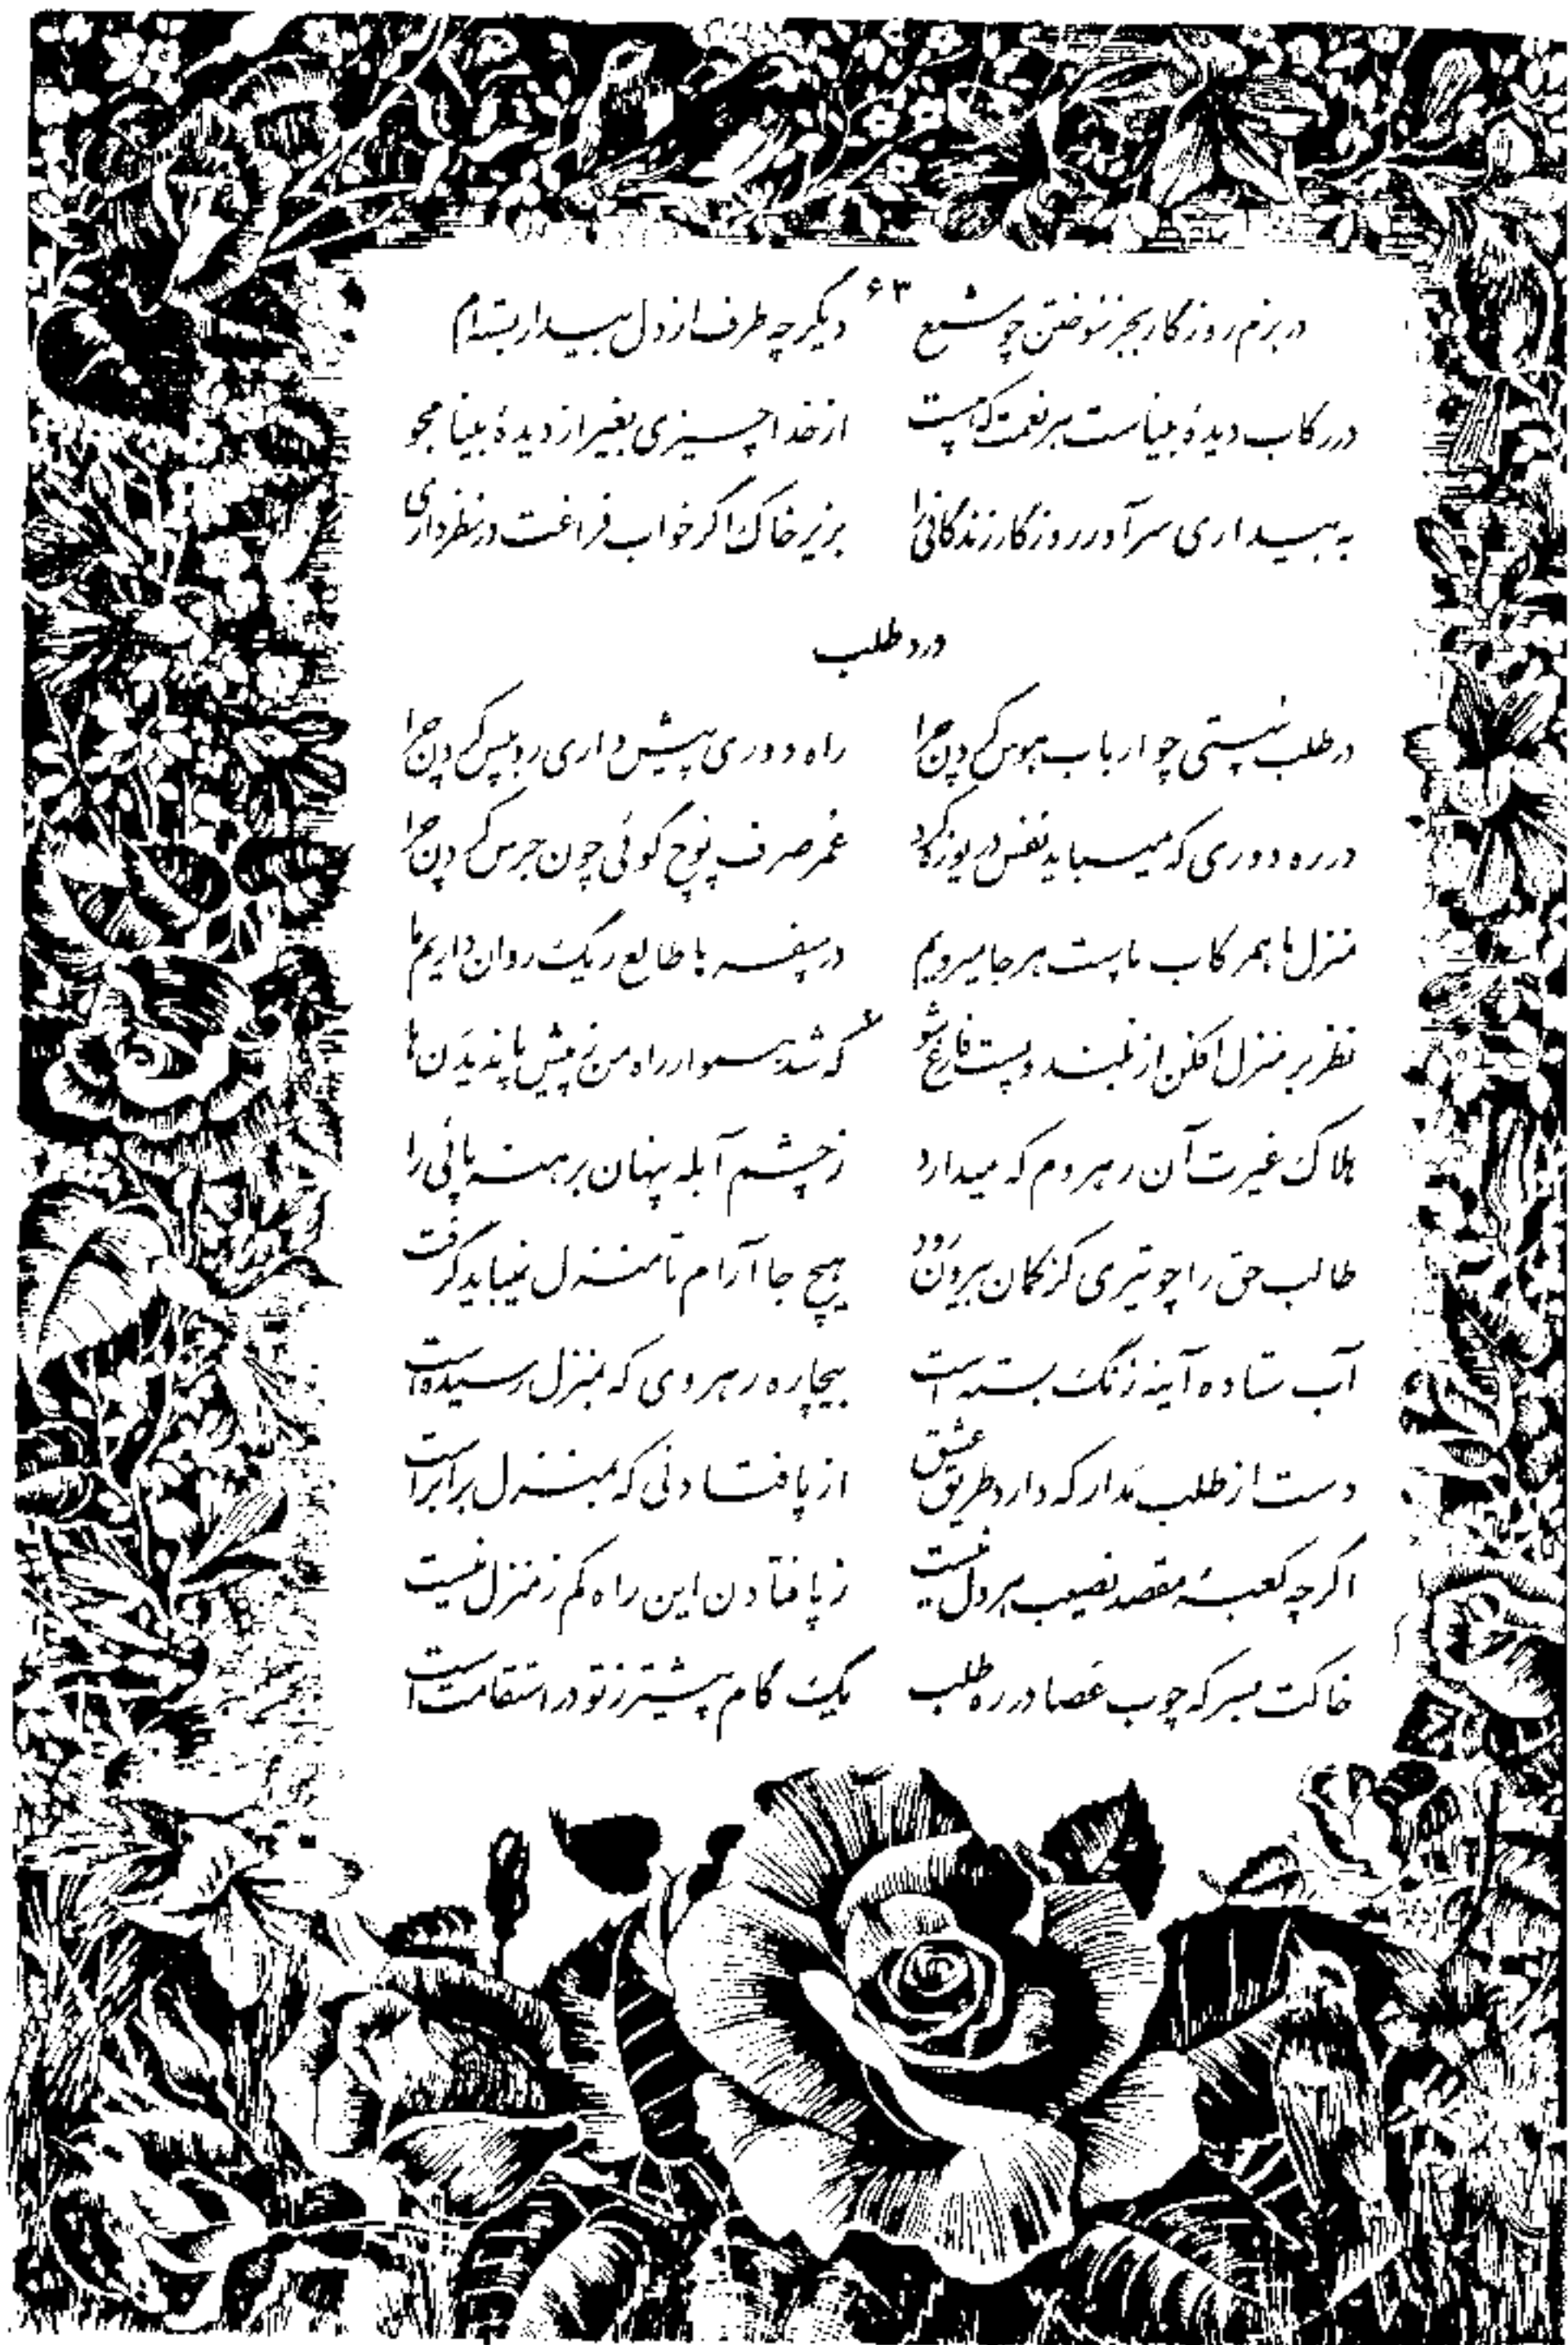 ۶۳
در بزم روزگار بجز سوختن چو شمع دیگر چه طرف از دل بیدار بسته‌ام
در رکاب دیدهٔ بیناست هر نعمت که هست از خدا چیزی بغیر از دیدهٔ بینا مجو
به بیداری سرآور روزگار زندگانی را بزیر خاک اگر خواب فراغت در نظر داری
درد طلب
در طلب سستی چو ارباب هوس کردن چرا راه دوری پیش داری رو بپس کردن چرا
در ره دوری که میباید نفس دریوزه کرد عمر صرف پوچ گوئی چون جرس کردن چرا
منزل ما همرکاب ماست هر جا میرویم در سفر ها طالع ریگ روان داریم ما
نظر بر منزل افکن از بلند و پست فارغ شو که شد هموار راه من ز پیش پا ندیدن ها
هلاک غیرت آن رهروم که میدارد ز چشم آبله پنهان برهنه پائی را
طالب حق را چو تیری کز کمان بیرون رود هیچ جا آرام تا منزل نمیباید گرفت
آب ستاده آینه زنگ بسته است بیچاره رهروی که بمنزل رسیده است
دست از طلب مدار که دارد طریق عشق از پا فتادنی که بمنزل برابر است
اگر چه کعبهٔ مقصد نصیب هر دل نیست ز پا فتادن این راه کم ز منزل نیست
خاکت بسر که چوب عصا در ره طلب یک گام پیشتر ز تو در استقامت است